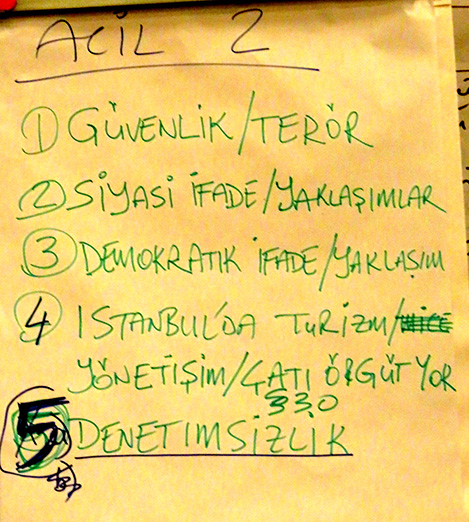 ACİL 2
1) GÜVENLİK/TERÖR
2) SİYASİ İFADE/YAKLAŞIMLAR
3 DEMOKRATİK İFADE/YAKLAŞIM
4 ISTANBUL'DA TURİZM/
YÖNETİŞİM/ÇATI ÖRGÜT YOR
33,0
5 DENETIMSİZLIK